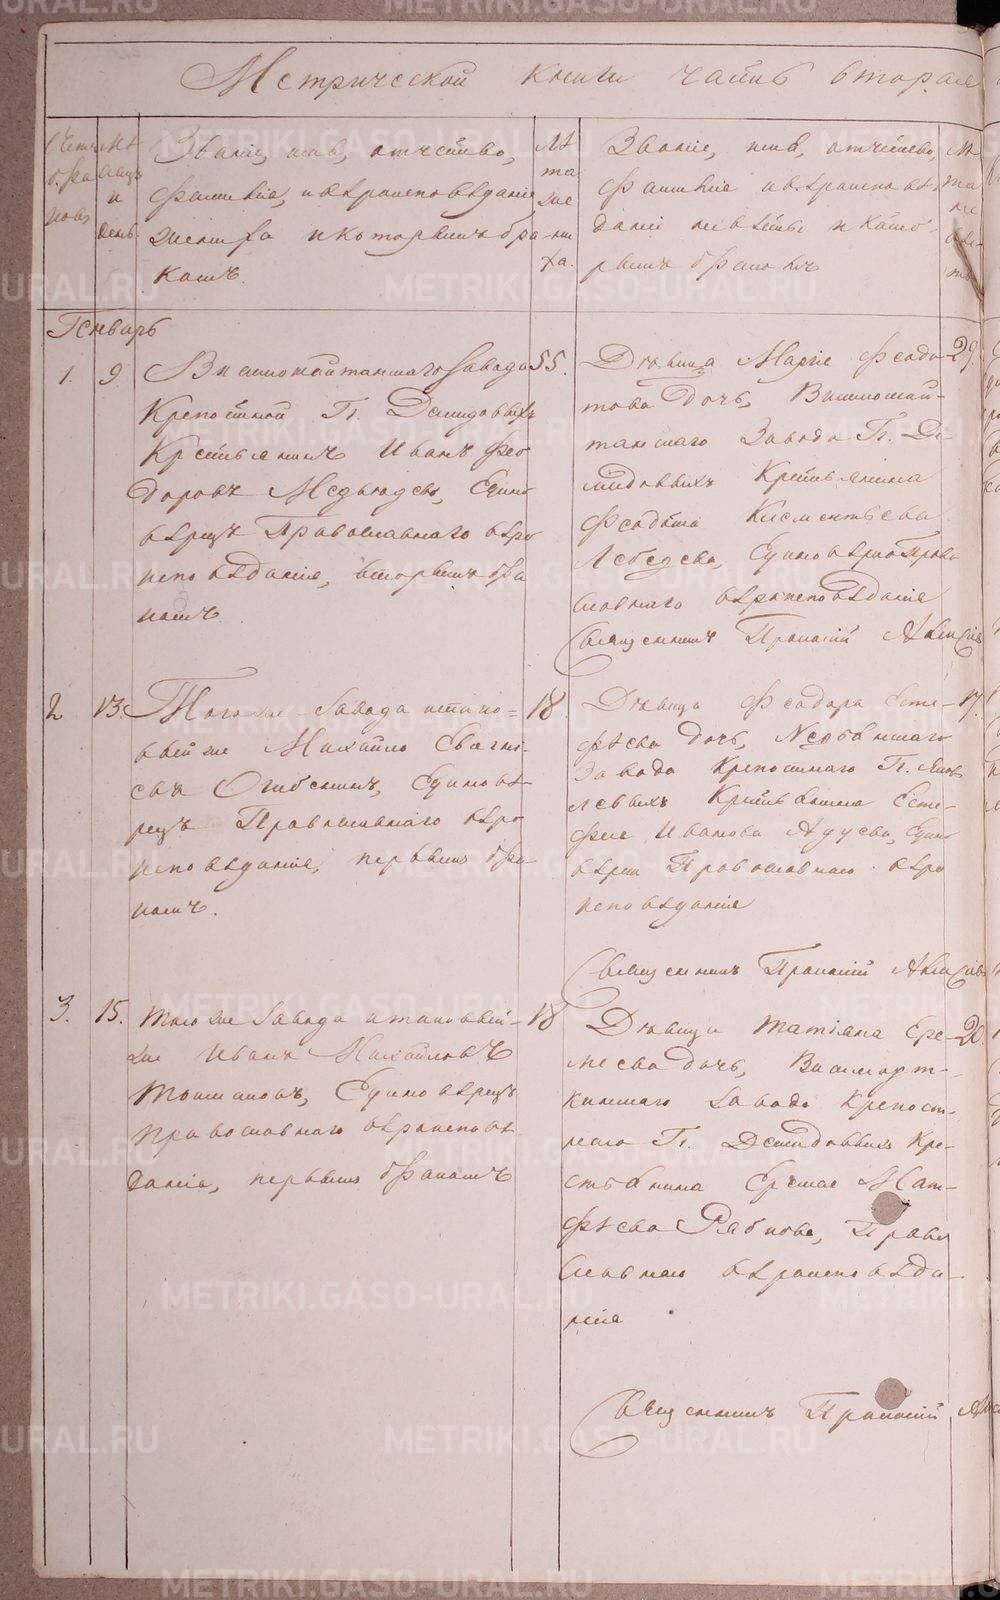 Метрической книги часть вторая
Счетъ браковъ
Мѣсяцъ и день
Званіе, имя, отчество,
фамилія, и вѣроисповѣданіе
жениха и которымъ бра
комъ.
Лѣта жениха.
Званіе, имя, отчество,
фамилія и вѣроисповѣ
даніе невѣсты и кото
рымъ бракомъ
Лѣта невѣсты
Генварь
1. 9 Вишмошайтанскаго завода 55.
Крепостной Гг. Демидовыхъ
Крестьянинъ Иванъ Фео
доровъ Медведевъ, Едино
вѣрецъ Православнаго вѣро
исповѣданія, вторымъ бра
комъ
Дѣвица Марія Федо- 29.
това дочь, Вишмошай-
танскаго завода Гг. Де
мидовыхъ Крестьянина
Федота Климентьева
Лебедева, Единовѣрно Право
славнаго вѣроисповѣданія
Священникъ Прокопій
2 13. Того же завода и тако= 18.
вый же Михайло Евгень-
евъ Огибенинъ, Единовѣ-
рецъ Православнаго вѣро
исповѣданія, первымъ бра-
комъ.
Дѣвица Федора Есте- 17
фѣева дочь, Невьянскаго
завода Крепостнаго Гг. Яков
левыхъ Крестьянина Есте-
фея Иванова Едино
вѣрка Православнаго вѣро
исповѣданія
Священникъ Прокопій
3. 15. того же завода и таковый- 18
же Иванъ Михайловъ
Толмачовъ, Единовѣрецъ
православнаго вѣроисповѣ
данія, первымъ бракомъ
Дѣвица Татіана Ере- 20.
меева дочь, Висимоут-
кинскаго завода Крепост-
наго Гг. Демидовыхъ Кре-
стьянина Еремея Мат-
фѣева Рябкова, Право
славнаго вѣроисповѣда-
нія
Священникъ Прокопій
METRIKI.GASO-URAL.RU